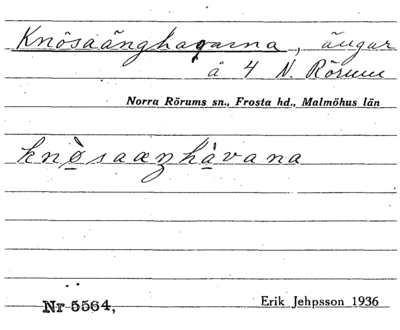 Knösaänghagarna, ängar
å 4 N. Rörum
Norra Rörums sn., Frosta hd., Malmöhus län
knø̀saaʒhàvana
Nr 5564,
Erik Jehpsson 1936